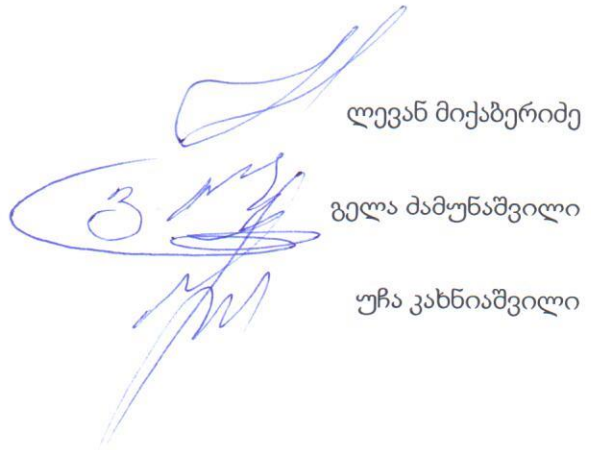 ლევან მიქაბერიძე
გელა ძამუნაშვილი
უჩა კახნიაშვილი